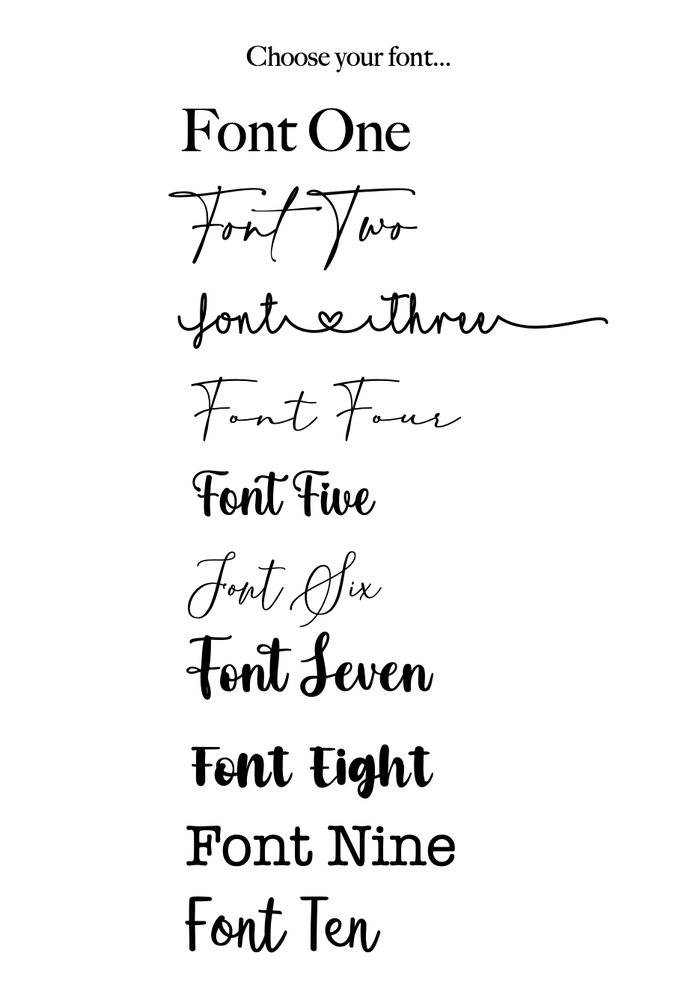 Choose your font...
Font One
Font Two
font three
Font Four
Font Five
Font Six
Font Seven
Font Eight
Font Nine
Font Ten